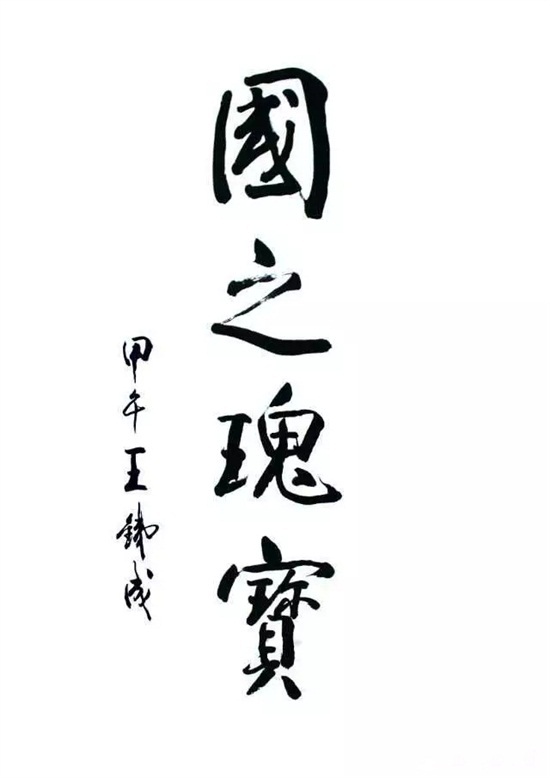 國之瑰寶
甲午王鐵成